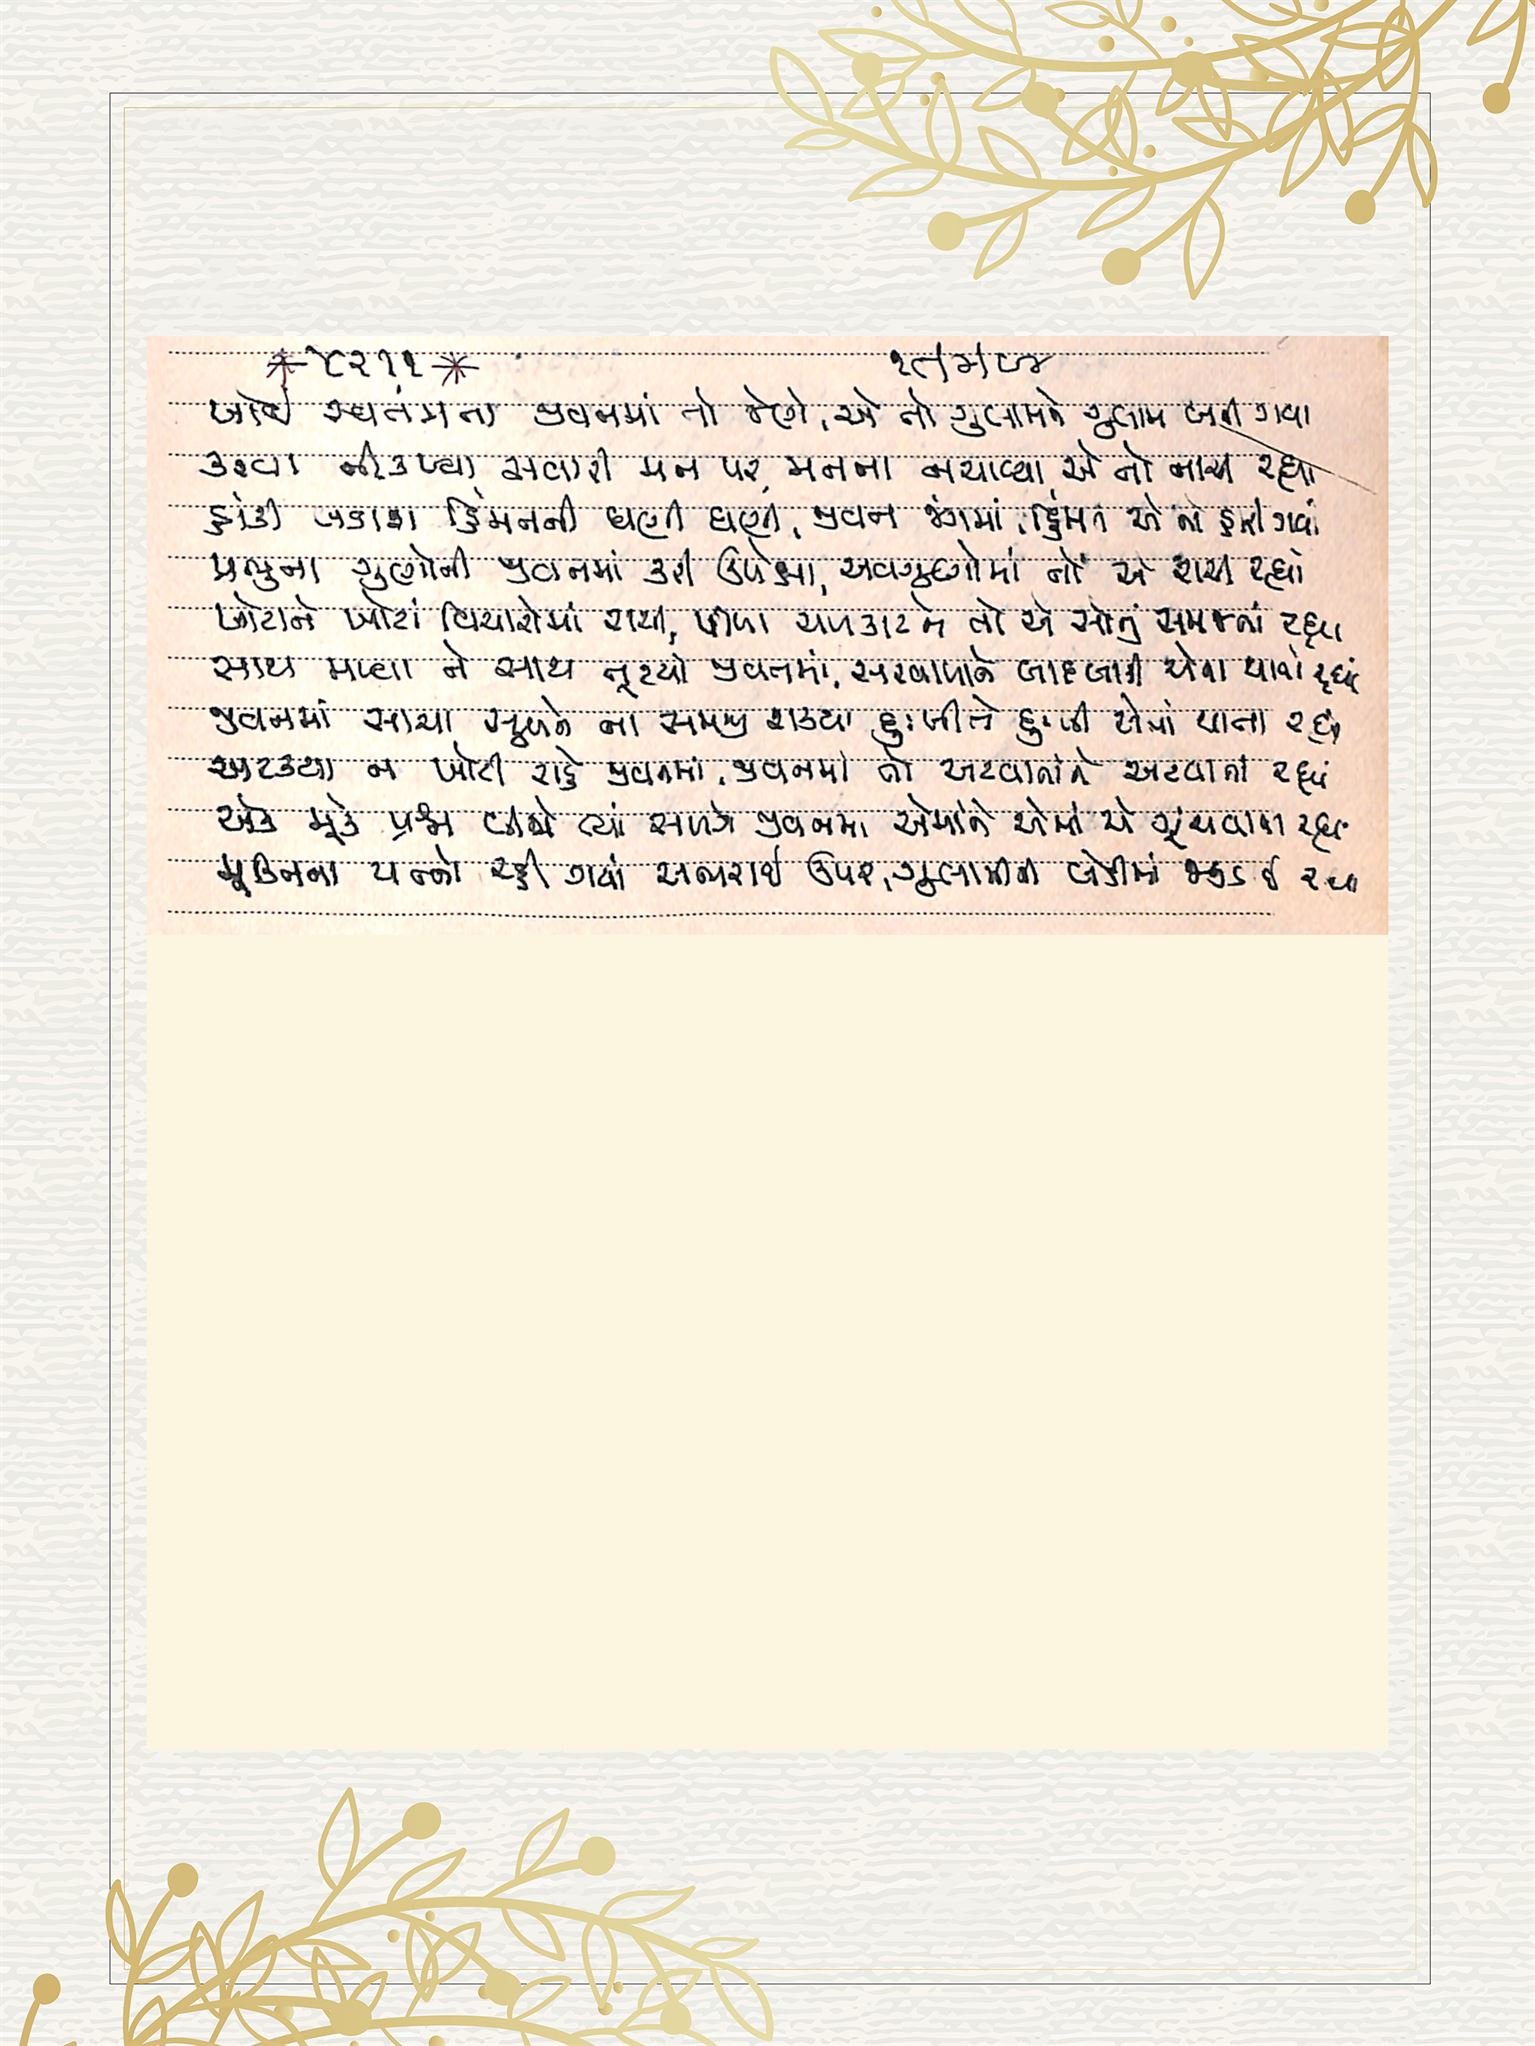 ખોઈ સ્વતંત્રતા જીવનમાં તો જેણે, એ તો ગુલામને ગુલામ બની ગયા
કરવા નીકળ્યા સવારી મન પર, મનના નચાવ્યા એ તો નાચી રહ્યા
હાંકી બડાશ હિંમતની ઘણી ઘણી, જીવન જંગમાં હિંમત એ તો હારી ગયાં
પ્રભુના ગુણોની જીવનમાં કરી ઉપેક્ષા, અવગુણોમાં તો એ રાચી રહ્યો
ખોટાને ખોટાં વિચારોમાં રાચી, પીળા ચળકાટને તો એ સોનું સમજતાં રહ્યા
સાથ મળ્યા ને સાથ તૂટયો જીવનમાં, સરવાળાને બાદબાકી એવા થાતાં રહ્યાં
જીવનમાં સાચા સુખને ના સમજી શક્યા દુઃખીને દુઃખી એમાં થાતા રહ્યાં
અટક્યા ન ખોટી રાહે જીવનમાં, જીવનમાં તો અટવાતાને અટવાતા રહ્યાં
એક મૂકે પ્રશ્ન બીજો ત્યાં સળગે જીવનમાં એમાંને એમાં એ ગૂંચવાતા રહ્યાં
મુક્તિના યત્નો રહી ગયાં અભરાઈ ઉપર, ગુલામીની બેડીમાં જકડાઈ રહ્યા